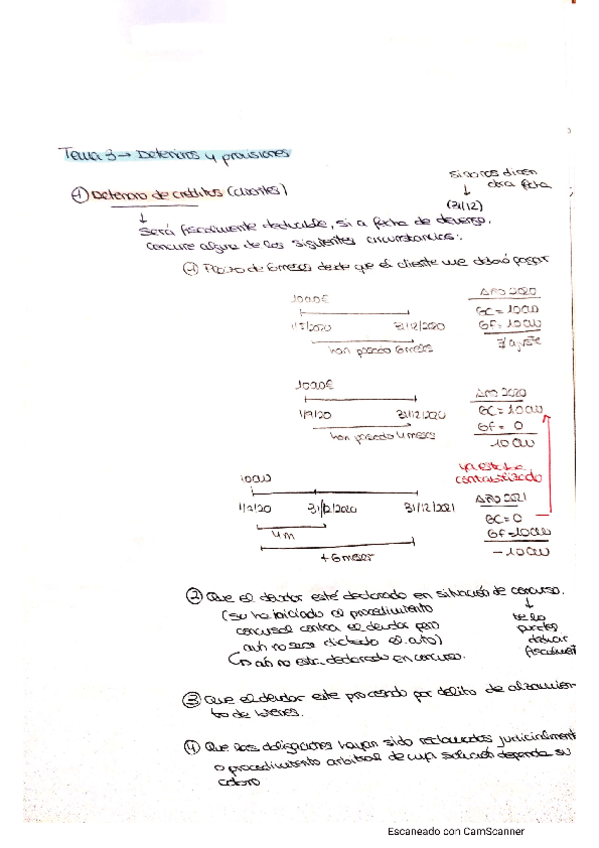 Tema 3 → Deterioros y provisiones
si no nos dicen
otra fecha
① Deterioro de créditos (clientes)
(31/12)
Será fiscalmente deducible, si a fecha de devengo,
concurre alguna de las siguientes circunstancias:
① Plazo de 6 meses desde que el cliente me debió pagar
AÑO 2020
1000€
GC = 1000
GF = 1000
1/7/2020 31/12/2020
∄ ajuste
han pasado 6 meses
1000€
AÑO 2020
1/9/20 31/12/2020
GC = 1000
GF = 0
han pasado 4 meses
1000
ya esta
contabilizado
1000
AÑO 2021
31/12/2020 31/12/2021
GC = 0
GF = 1000
4m
- 1000
+ 6 meses
② Que el deudor esté declarado en situación de concurso.
(su ha iniciado el procedimiento
concursal contra el deudor pero
aun no se ha dictado el auto)
te lo
puedes
deducir
fiscalment
↳ aun no esta declarado en concurso.
③ Que el deudor este procesado por delito de alzamien-
to de bienes.
④ Que las obligaciones hayan sido reclamadas judicialment
o procedimiento arbitral de cuya solución dependa su
cobro
Escaneado con CamScanner